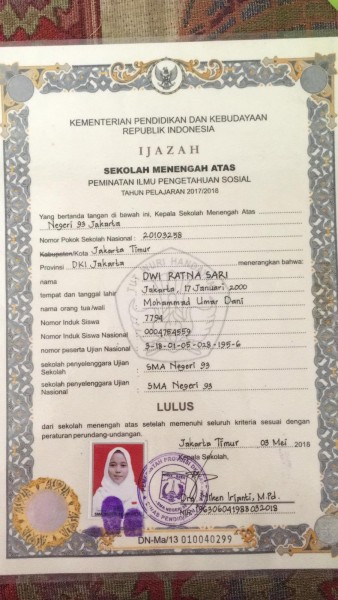 KEMENTERIAN PENDIDIKAN DAN KEBUDAYAAN
REPUBLIK INDONESIA
IJAZAH
SEKOLAH MENENGAH ATAS
PEMINATAN ILMU PENGETAHUAN SOSIAL
TAHUN PELAJARAN 2017/2018
Yang bertanda tangan di bawah ini, Kepala Sekolah Menengah Atas
Negeri 93 Jakarta
Nomor Pokok Sekolah Nasional : 20103258
Kabupaten/Kota Jakarta Timur
Provinsi DKI Jakarta menerangkan bahwa:
nama DWI RATNA SARI
tempat dan tanggal lahir Jakarta, 17 Januari 2000
nama orang tua/wali Mohammad Umar Dani
Nomor Induk Siswa 7794
Nomor Induk Siswa Nasional 0004754559
nomor peserta Ujian Nasional 3-18-01-05-028-195-6
sekolah penyelenggara Ujian SMA Negeri 93
Sekolah
sekolah penyelenggara Ujian SMA Negeri 93
Nasional
LULUS
dari sekolah menengah atas setelah memenuhi seluruh kriteria sesuai dengan
peraturan perundang-undangan.
Jakarta Timur 03 Mei 2018
Kepala Sekolah,
Irianti, M.Pd.
DN-Ma/13 010040299